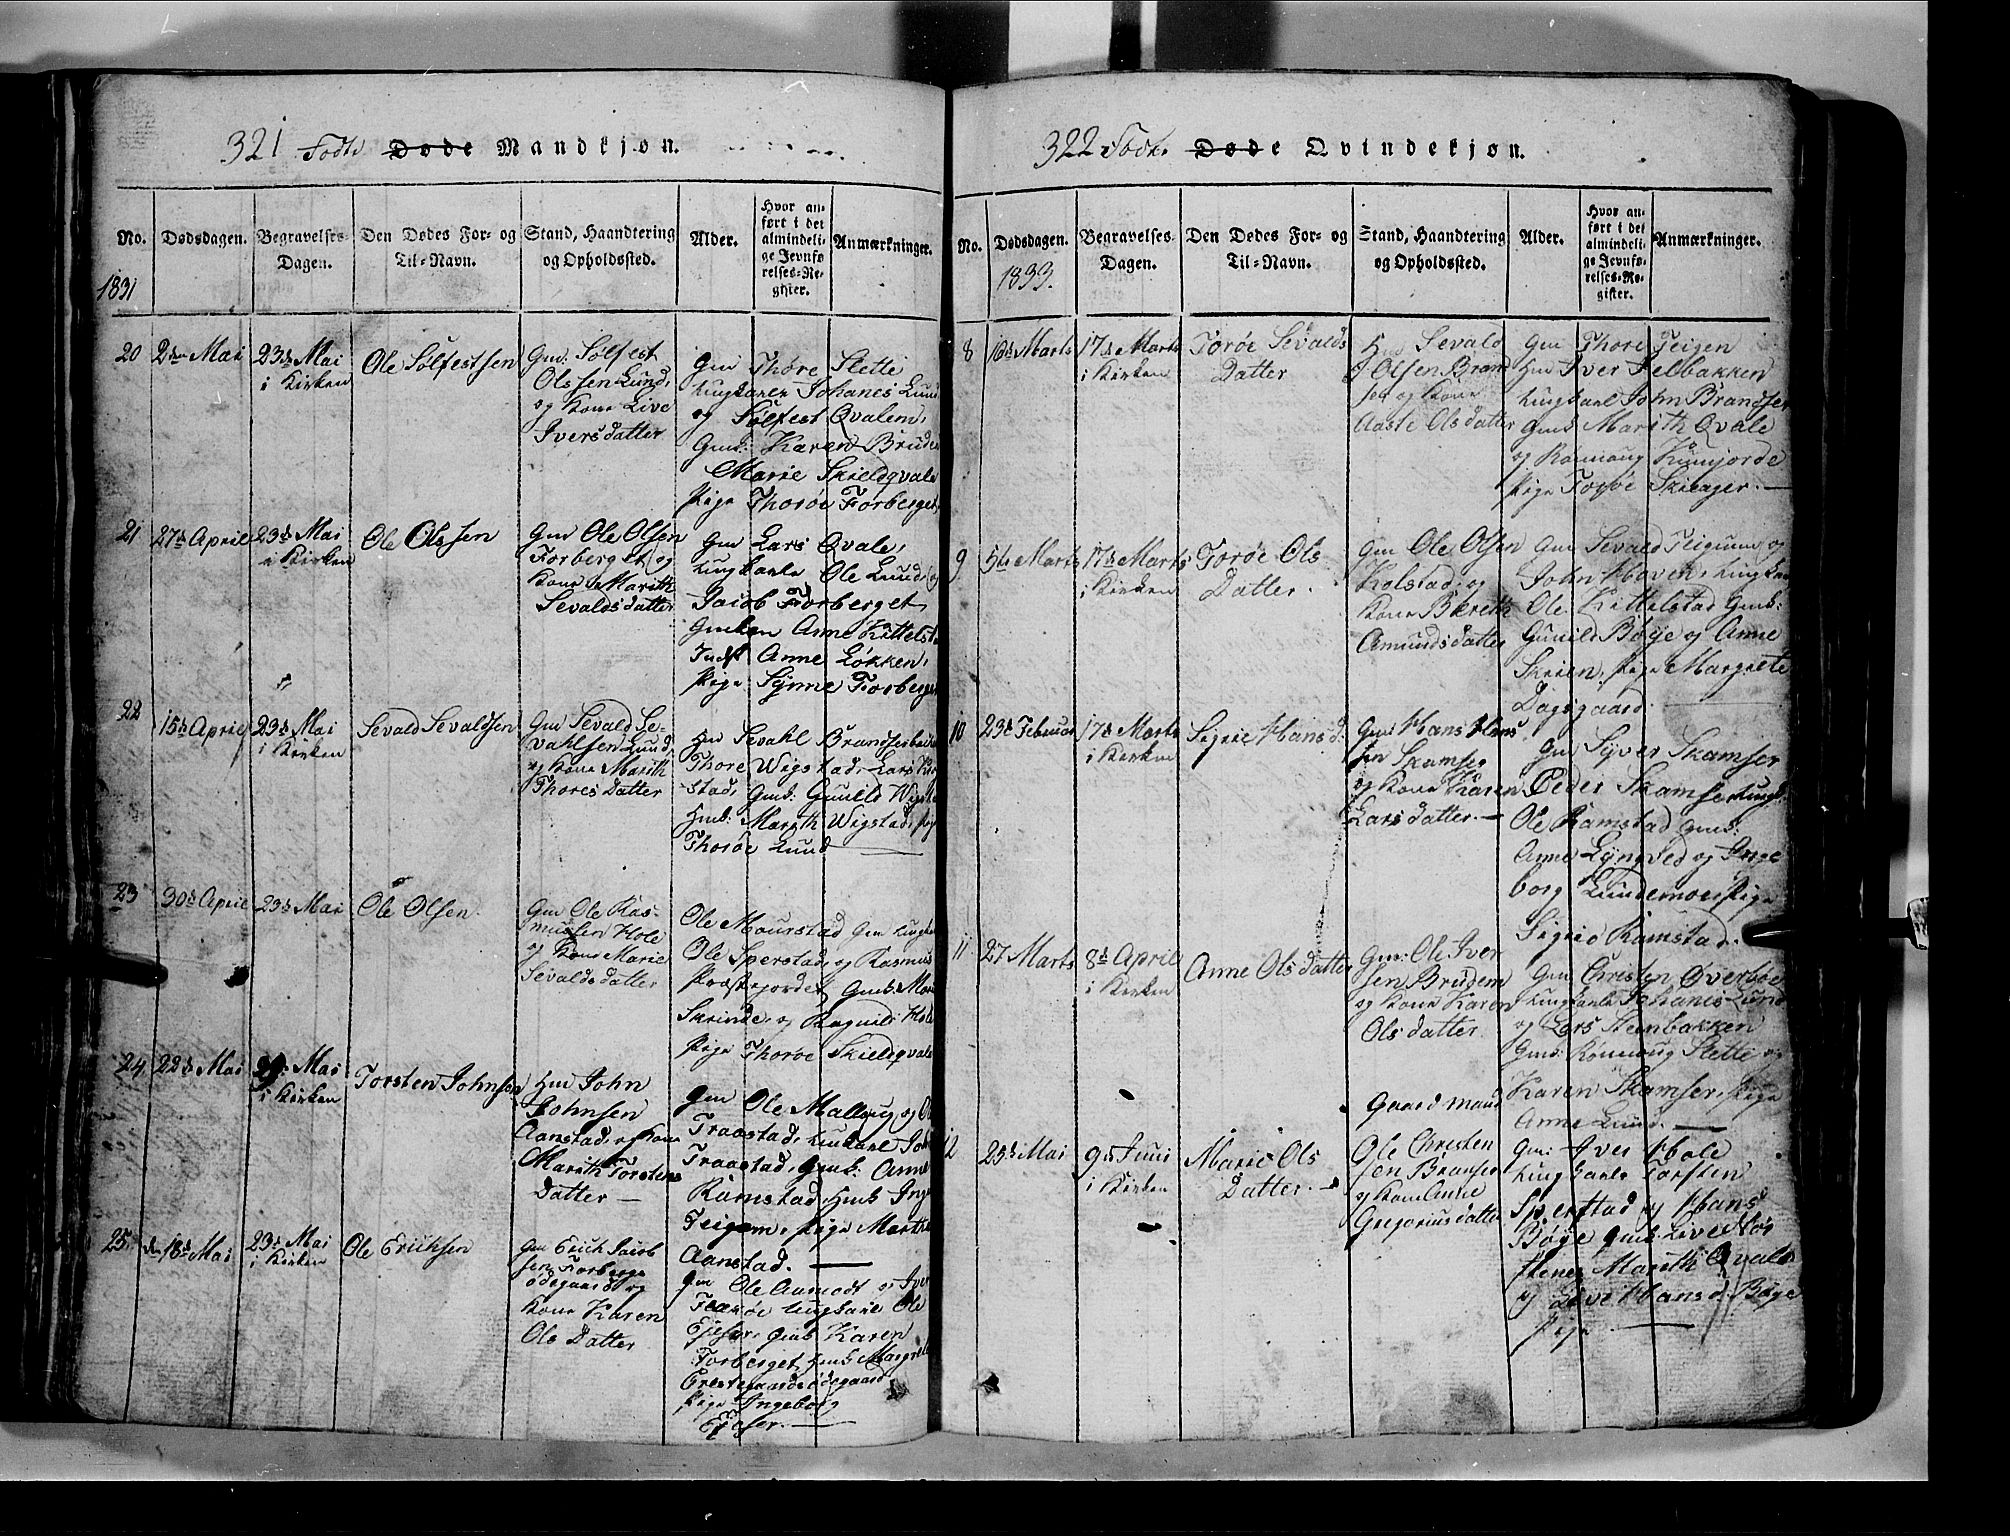 321 Fødte Døde Mandkjøn.
No. Dødsdagen. Begravelses-Dagen. Den Dødes For- og Til-Navn. Stand, Haandtering og Opholdssted. Alder. Hvor anført i det almindelige Jevnførelses-Register. Anmærkninger.
1831
20 2den Mai 23de Mai i Kirken Ole Sølfestsen
Gm: Sølfest
Olssen Lund,
og Kone Live
Iversdatter
Gm Thøre Slette
Ungkarle Johanes Lund
og Sølfest Qvalem,
Gmk: Karen Bruden
Marie Skieldqvale
Pige Thorøe Forberget
21 27de April 23de Mai i Kirken Ole Olssen
Gm Ole Olsen
Forberget og
Kone Marith
Sevaldsdatter
Gm Lars Qvale,
Ungkarle Ole Lund og
Jacob Forberget
Gmkon Anne Kittelsta
Indst Anne Løkken,
Pige Synne Forberget
22 15de April 23de Mai i Kirken Sevald Sevaldsen
Gm Sevald Se-
vahlsen Lund,
og Kone Marith
Thores Datter
Hm Sevahl
Thore Wigstad, Lars
stad, Gmk: Gunild
Hmk: Marith Wigstad, Pige
Thorøe Lund
23 30de April 23de Mai Ole Olsen
Gm Ole Ras-
mussen Hole
og Kone Marie
Sevaldsdatter
Ole Mourstad Gm
Ole Sperstad, og Rasmus
Præstejordet Gmk: Mari
Skrinde, og Ragnild Hole
Pige Thorøe Skieldqvale
24 22de Mai Mai i Kirken Torsten Johnsen
Hm John
Johnsen
Aanstad, og Kone
Marith Torstens
Datter —
Gm Ole Mallaug og
Traastad, Ungkarl
Traastad, Gmk: Anne
Ramstad, Hmk
Teigem, Pige Marthe
Aanstad. —
25 den 18de Mai 23de Mai i Kirken Ole Erichsen
Gm Erich Jacob
sen Forberge
ødegaard og
Kone Karen
Ols Datter
Gm Ole Aamodt og Iver
Ungkarl Ole
Gmk Karen
Forberget, Hmk: Margrete
ødegaard
Pige Ingeborg
322 Fødte Døde Qvindekjøn.
No. Dødsdagen. Begravelses-Dagen. Den Dødes For- og Til-Navn. Stand, Haandtering og Opholdssted. Alder. Hvor anført i det almindelige Jevnførelses-Register. Anmærkninger.
1833.
8 10de Marts 17de Marts i Kirken Torøe Sevalds Datter
Hm Sevald
Olsen Brand
set og Kone
Aaste Olsdatter
Gm Thore Teigen
Hm Iver Felbakken
Ungkarl John Brandset
Gmk Marith Qvale
og Rønnoug
Pige Torøe Skieager. —
9 5te Marts 17de Marts i Kirken Torøe Ols Datter.
Gm Ole Olsen
Kolstad, og
Kone Bereth
Amundsdatter
Gm Sevald Teigum og
John Hoven, Ungkarl
Ole Kittelstad Gmk:
Gunild Bøye og Anne
Skeien, Pige Margrete
Dagsgaard. —
10 23de Februar 17de Marts i Kirken Sigrie Hans d.
Gm: Hans Hans
sen Skamser
og Kone Karen
Larsdatter. —
Gm Syver Skamser
Peder Skamser Ungk
Ole Ramstad Gmk:
Anne Lyngved og Inge
borg Lundemoe Pige
Sigrie Ramstad.
11 27 Marts 8de April i Kirken Anne Olsdatter
Gm: Ole Iver
sen Brudem
og Kone Karen
Olsdatter
Gm Christen Øverbøe
Ungkarle Johanis Lund
og Lars Steinbakken
Gmk: Rønnoug Slette og
Karen Skamser, Pige
Anne Lund. —
12 25de Mai 9de Juni i Kirken Marie Ols Datter. —
Gaardmand
Ole Christen
sen Branser
og Kone Anne
Gregoriusdatter
Gm: Iver Hole
Ungkarle Torsten
Sperstad og Hans
Bøye Gmk: Live
Marith Qvale
og Live Hansd Bøye
Pige. —